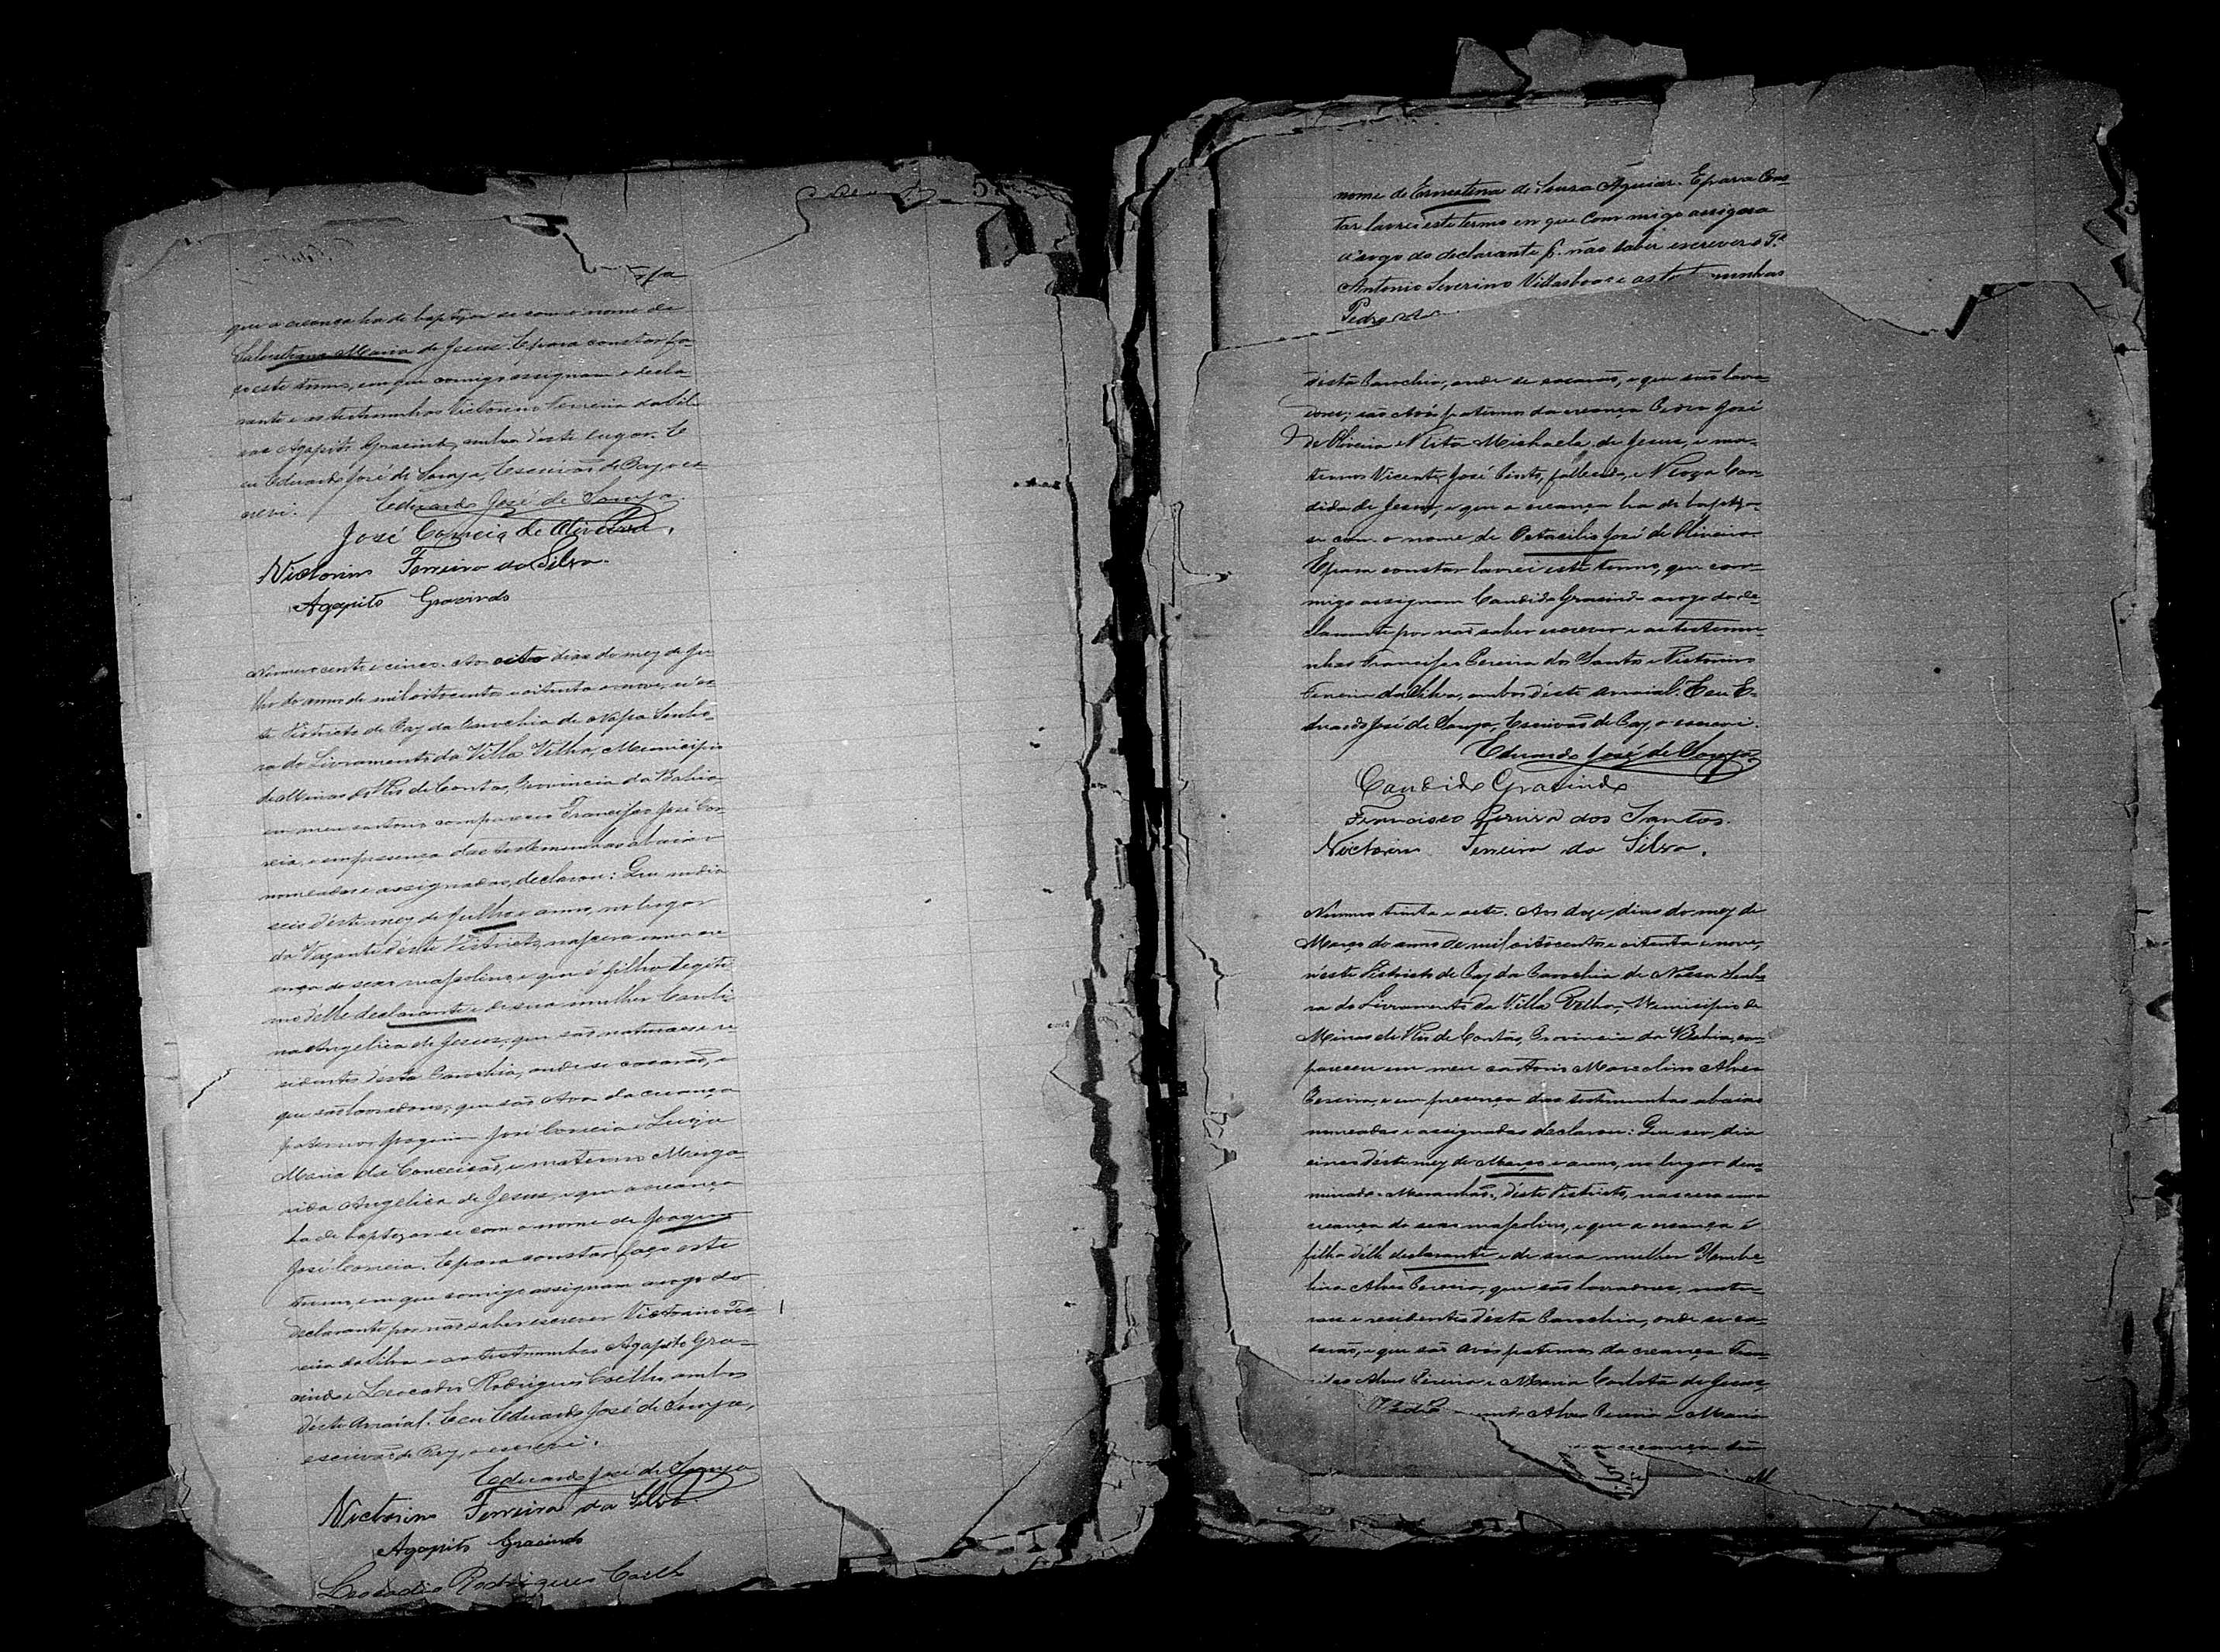 que a creança ha de baptizar se com o nome de
Silvestrana Maria de Jesus. E para constar fa-
ço este termo, em que comigo assignam o decla-
rante e as testemunhas Victorino Ferreira da Sil-
va e Agapito Gracindo, ambos d'este lugar. E
eu Eduardo José de Souza, Escrivão de Paz o es-
crevi.
Eduardo José de Souza
José Correia de Oliveira.
Victorino Ferreira da Silva.
Agapito Gracindo
Numero cento e cinco. Aos oito dias do mez de Ju-
lho do anno de mil oitocentos e oitenta e nove, n'es-
te Districto de Paz da Parochia de Nossa Senho-
ra do Livramento da Villa Velha, Municipio
de Minas do Rio de Contas, Provincia da Bahia
em meu cartorio compareceo Francisco José Cor-
reia, e em presença das testemunhas abaixo
nomeadas e assignadas, declarou: Que no dia
seis d'este mez de Julho e anno, no lugar
da Vazante d'este Districto, nascera uma cre-
ança do sexo masculino, e que é filho legiti-
mo d'elle declarante e de sua mulher
Angelica de Jesus, que são naturaes e re-
sidentes d'esta Parochia, onde se casarão, e
que são lavradores; que são Avós da creança
paternos Joaquim José Correia e Luiza
Maria da Conceição, e maternos
Angelica de Jesus, e que a creança
ha de baptizar-se com o nome de Joaquim
José Correia. E para constar, faço este
termo, em que comigo assignam a rogo do
declarante por não saber escrever Victorino Fer-
reira da Silva e as testemunhas Agapito Gra-
cindo e Leocadio Rodrigues Coelho ambos
d'este Arraial. E eu Eduardo José de Souza,
escrivão de Paz, o escrevi.
Eduardo José de Souza
Victorino Ferreira da Silva
Agapito Gracindo
Leocadio Rodrigues Coelh
nome de Ernestina de Souza Aguiar. E para Cons-
tar lavrei este termo em que Commigo assigna
a rogo do declarante p. não saber escrever o
Antonio Severino Villasboas e as munhas
Pedro
d'esta Parochia, onde se casarão, e que são lavra-
dores; são Avós paternos da creança Pedro José
de Oliveira e Rita Michaela de Jesus, e ma-
ternos Vicente José Pinto, fallecido, e Can-
dida de Jesus, e que a creança ha de baptizar-
se com o nome de Octacilio José de Oliveira
E para constar lavrei este termo, que com-
migo assignam Candido Gracindo a rogo do de-
clarante por não saber escrever e as testemu-
nhas Francisco Pereira dos Santos e Victorino
Ferreira da Silva, ambos d'este Arraial. E eu E-
duardo José de Souza, Escrivão de Paz, o escrevi.
Eduardo José de Souza
Candido Gracindo
Francisco Pereira dos Santos.
Victorino Ferreira da Silva.
Numero trinta e sete. Aos doze dias do mez de
Março do anno de mil oitocentos e oitenta e nove,
n'este Districto de Paz da Parochia de Nossa Senho-
ra do Livramento da Villa Velha, Municipio de
Minas do Rio de Contas, Provincia da Bahia, com-
pareceu em meu cartorio Marcolino Alves
Pereira, e em presença das testemunhas abaixo
nomeadas e assignadas declarou: Que no dia
cinco d'este mez de Março e anno, no lugar deno-
minado Maranhão, d'este Districto, nascera uma
creança do sexo masculino, e que a creança é
filho d'elle declarante e de sua mulher Umbe-
lina Alves Pereira, que são lavradores, natu-
raes e residentes d'esta Parochia, onde se ca-
sarão, e que são Avós paternos da creança Fran-
cisco Alves Pereira e Maria Carlota de Jesus,
Alves Pereira e Maria
a creança